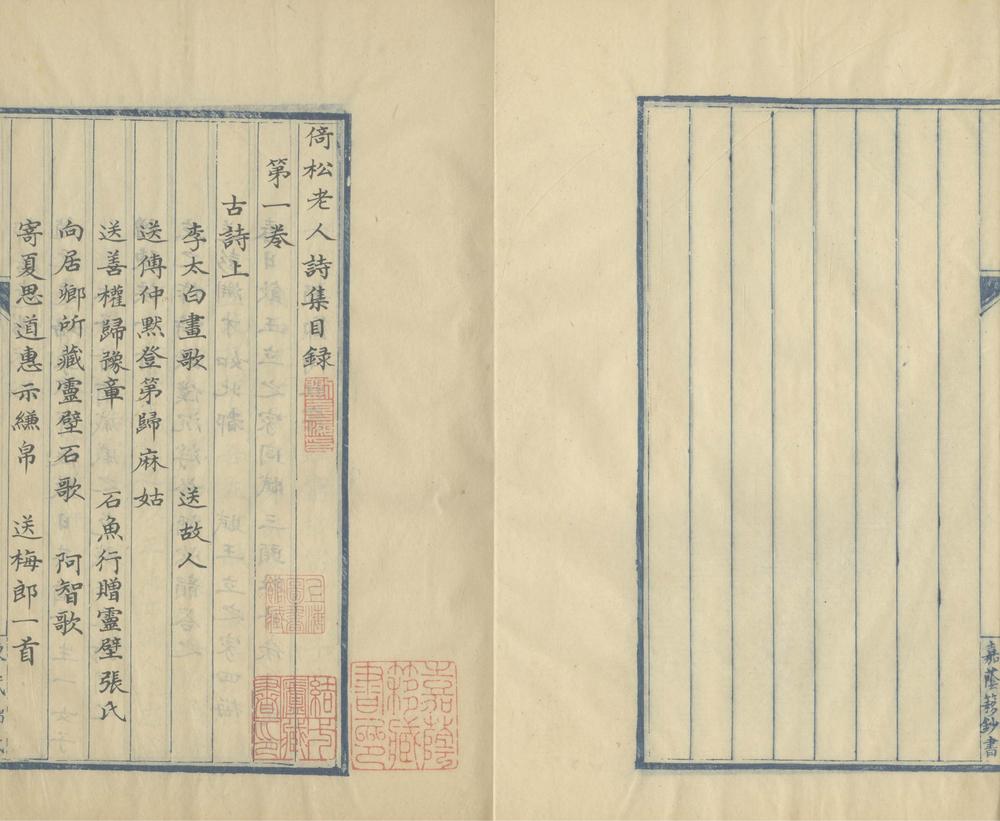 嘉蔭簃鈔書
倚松老人詩集目録
第一卷
古詩上
李太白畫歌 送故人
送傅仲黙登第歸麻姑
送善權歸豫章 石魚行贈靈壁張氏
向居鄉所藏靈壁石歌 阿智歌
寄夏思道惠示縑帛 送梅郎一首
嘉蔭簃藏書印